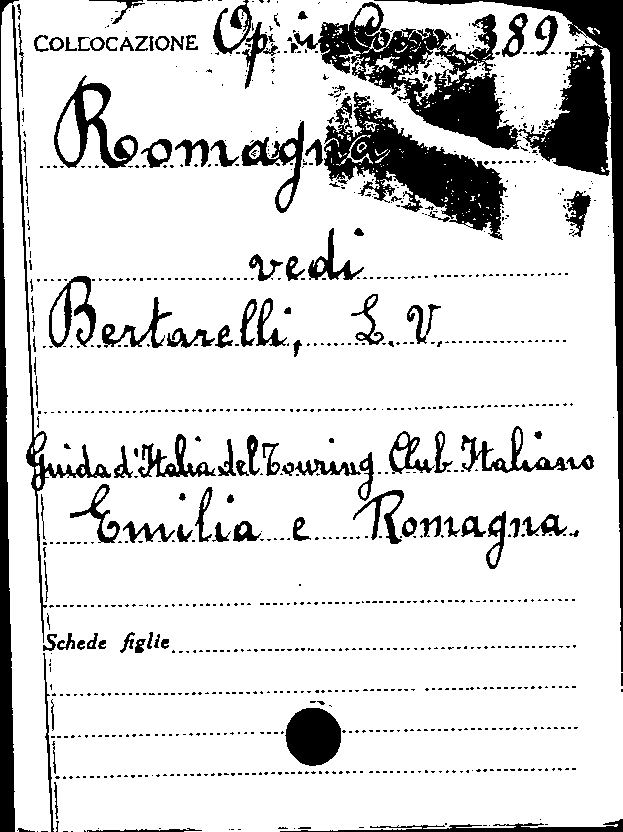 COLLOCAZIONE Op. in Corso 389
Romagna
vedi
Bertarelli, L. V.
Guida d'Italia del Touring Club Italiano
Emilia e Romagna.
Schede figlie